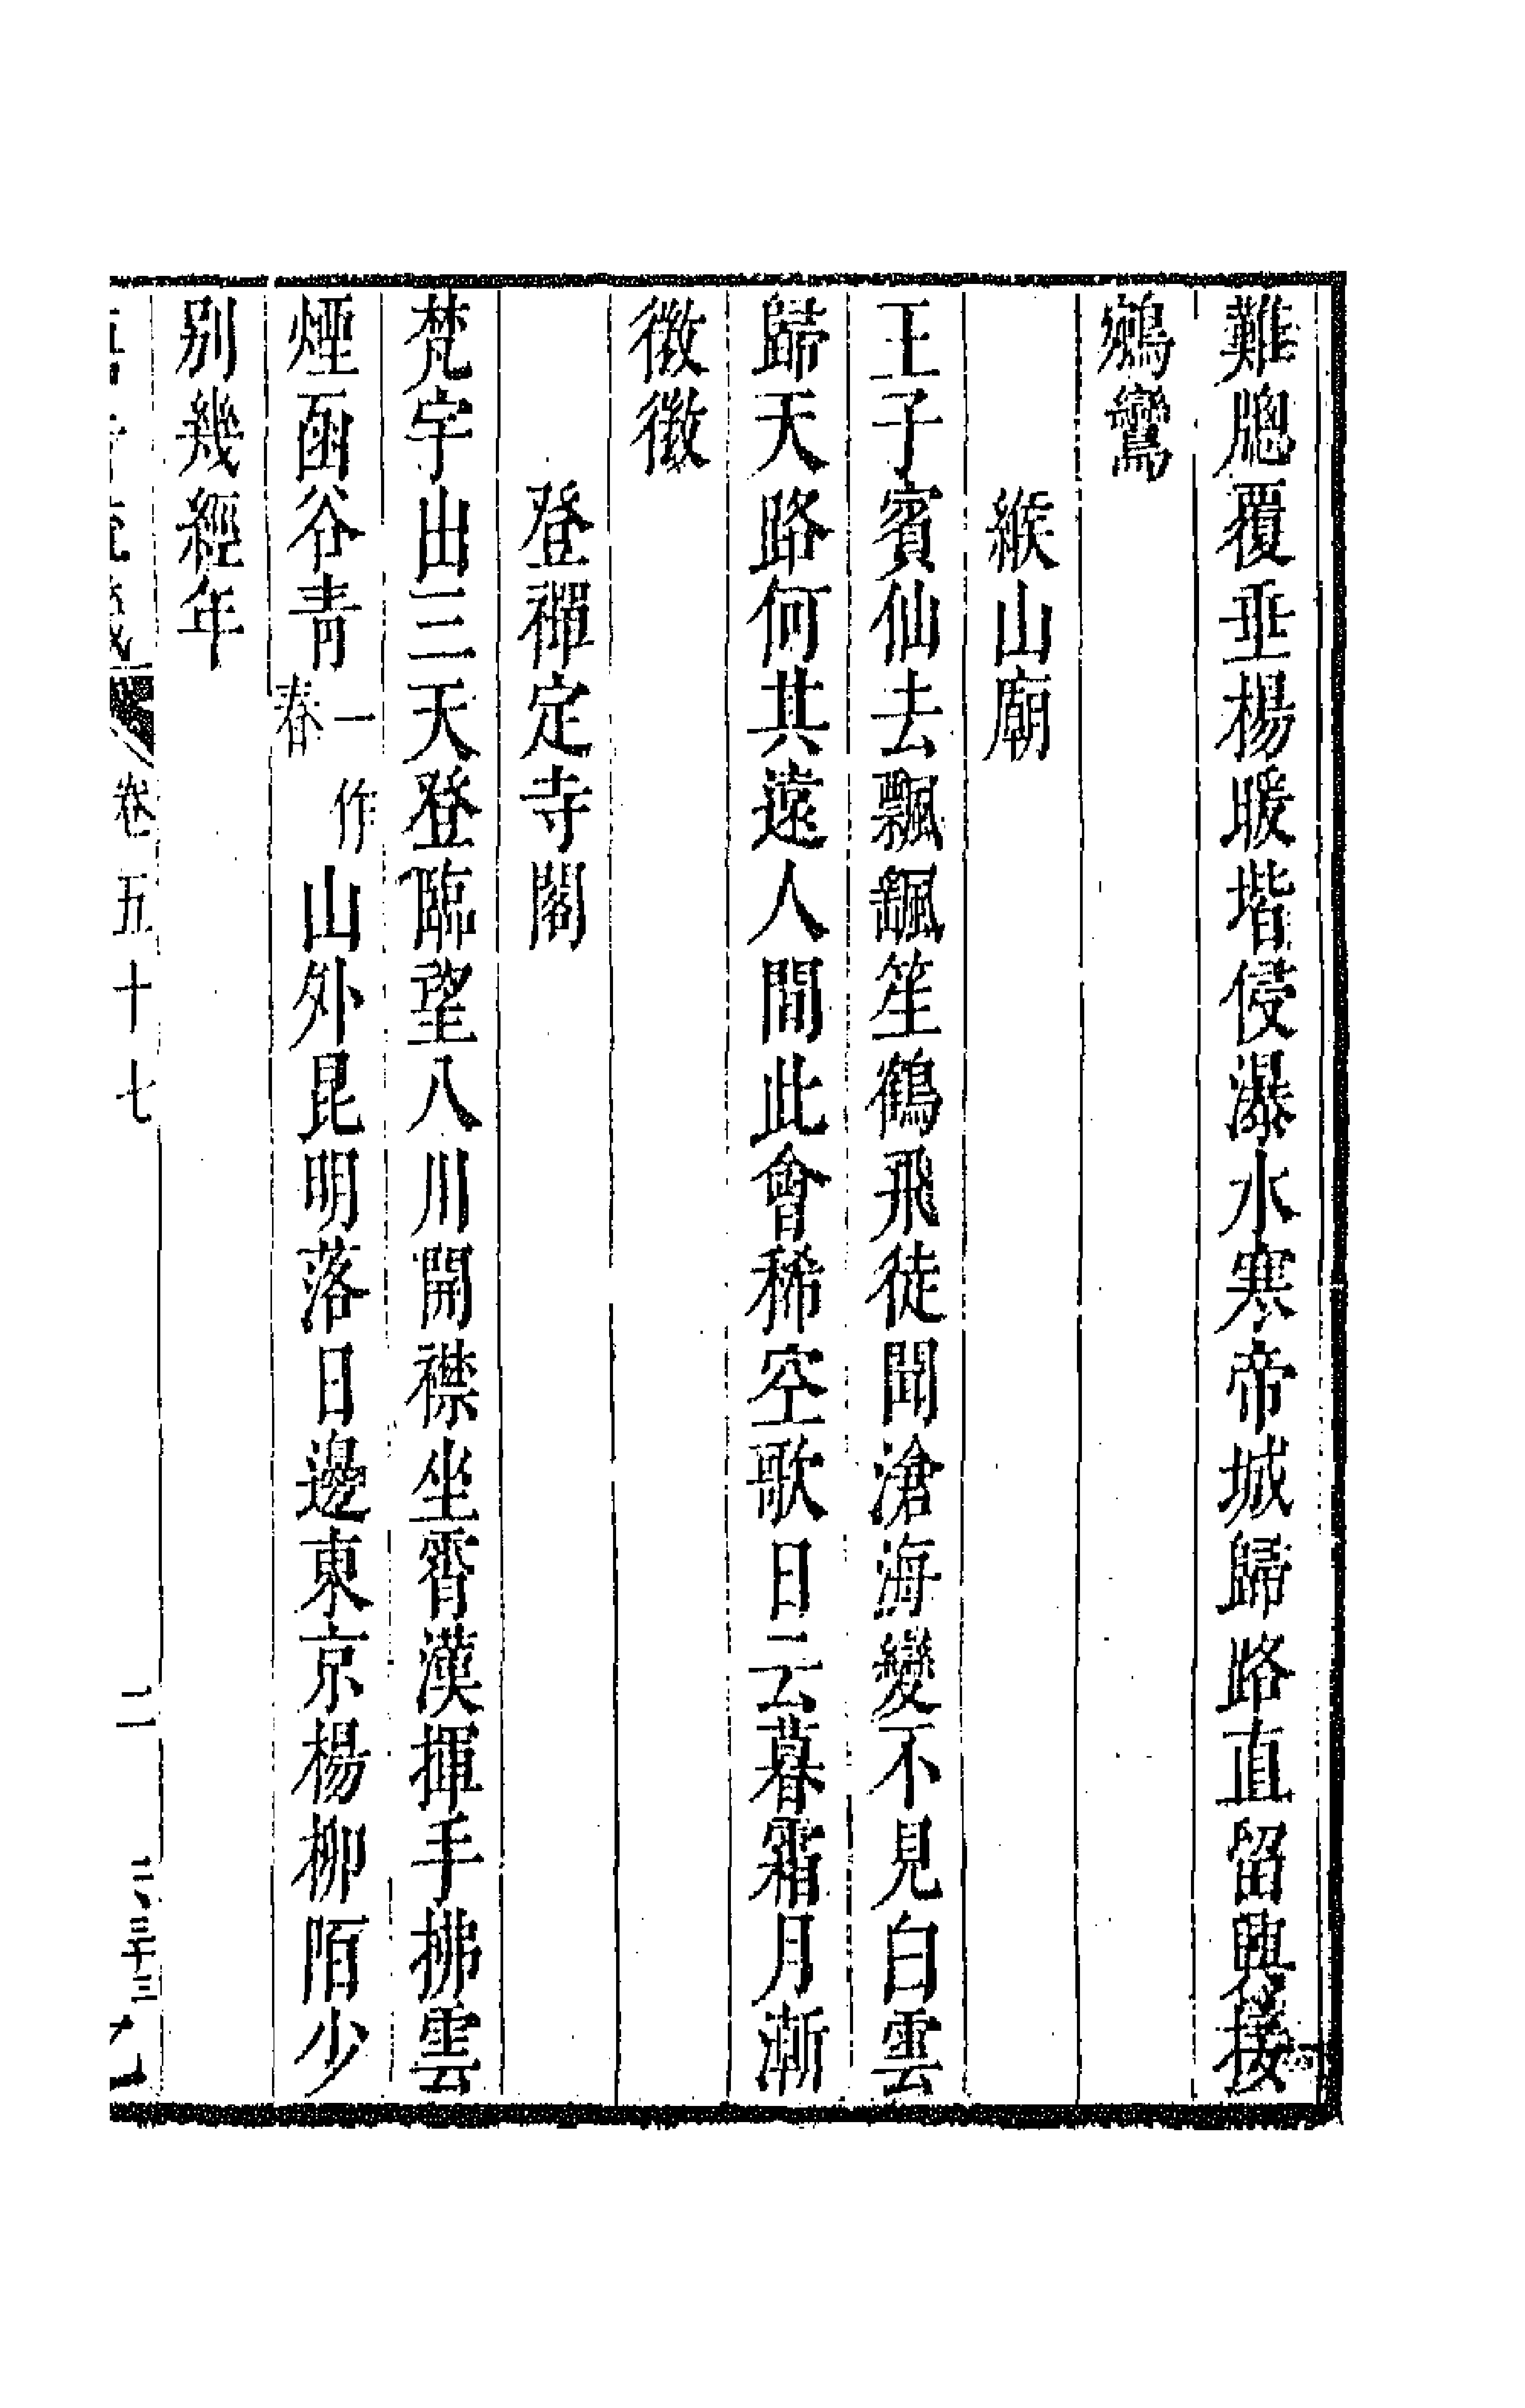 難牕覆垂楊暖堦侵瀑水寒帝城歸路直留興接
鵷鸞
緱山廟
王子賓仙去飄颻笙鶴飛徒聞滄海變不見白雲
歸天路何其遠人間此會稀空歌日云暮霜月漸
微微
登禪定寺閣
梵宇出三天登臨望八川開襟坐霄漢揮手拂雲
煙函谷青一作春山外昆明落日邊東京楊柳陌少
别幾經年
卷五十七
二